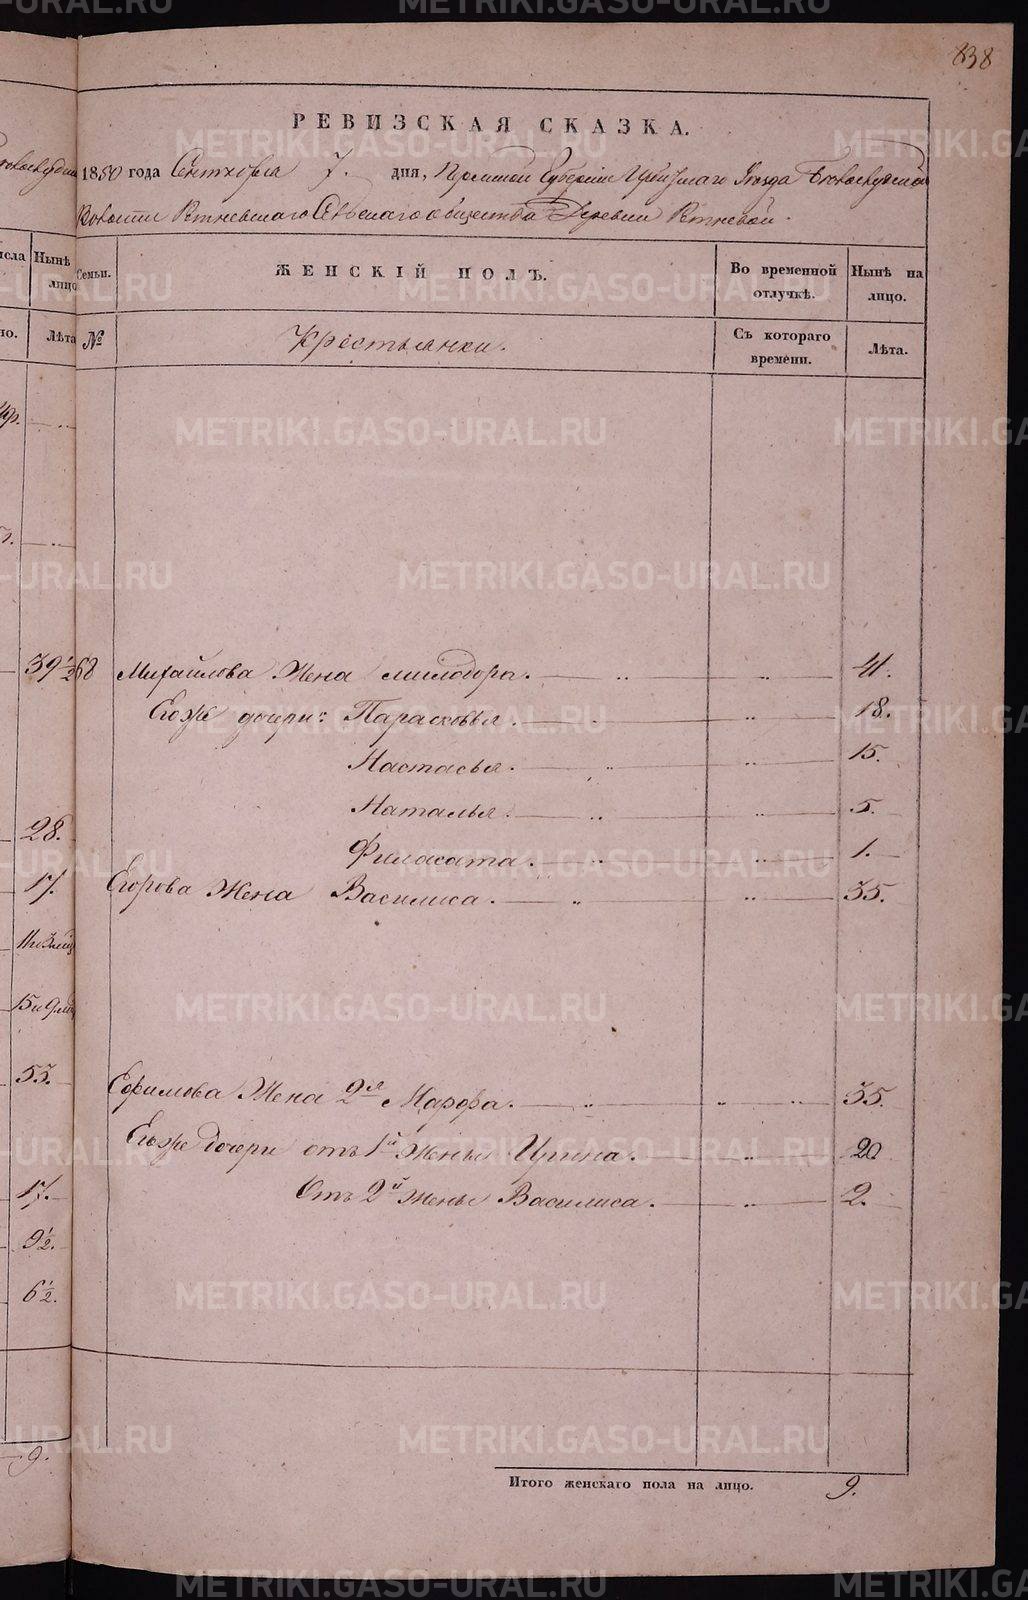 838
РЕВИЗСКАЯ СКАЗКА.
1850 года Сентября 7. дня, Пермской Губернии Уѣзда
Волости Сельскаго общества Деревни
исла Нынѣ лицо
Семьи. ЖЕНСКІЙ ПОЛЪ. Во временной отлучкѣ. Нынѣ на лицо.
но. Лѣта № Крестьянки. Съ котораго времени. Лѣта.
39 1/2 68 Михайлова Жена милодора. 41.
Егоже дочери: Парасковья. 18.
Настасья. 15.
Наталья. 5.
28. Филасата. 1.
17. Егорова Жена Василиса. 35.
53. Ефимова Жена 2я Марфа. 35.
Егоже дочери отъ 1й жены Ирина. 20.
17. Отъ 2й жены Василиса. 2.
9 1/2.
6 1/2.
9. Итого женскаго пола на лицо. 9.
METRIKI.GASO-URAL.RU